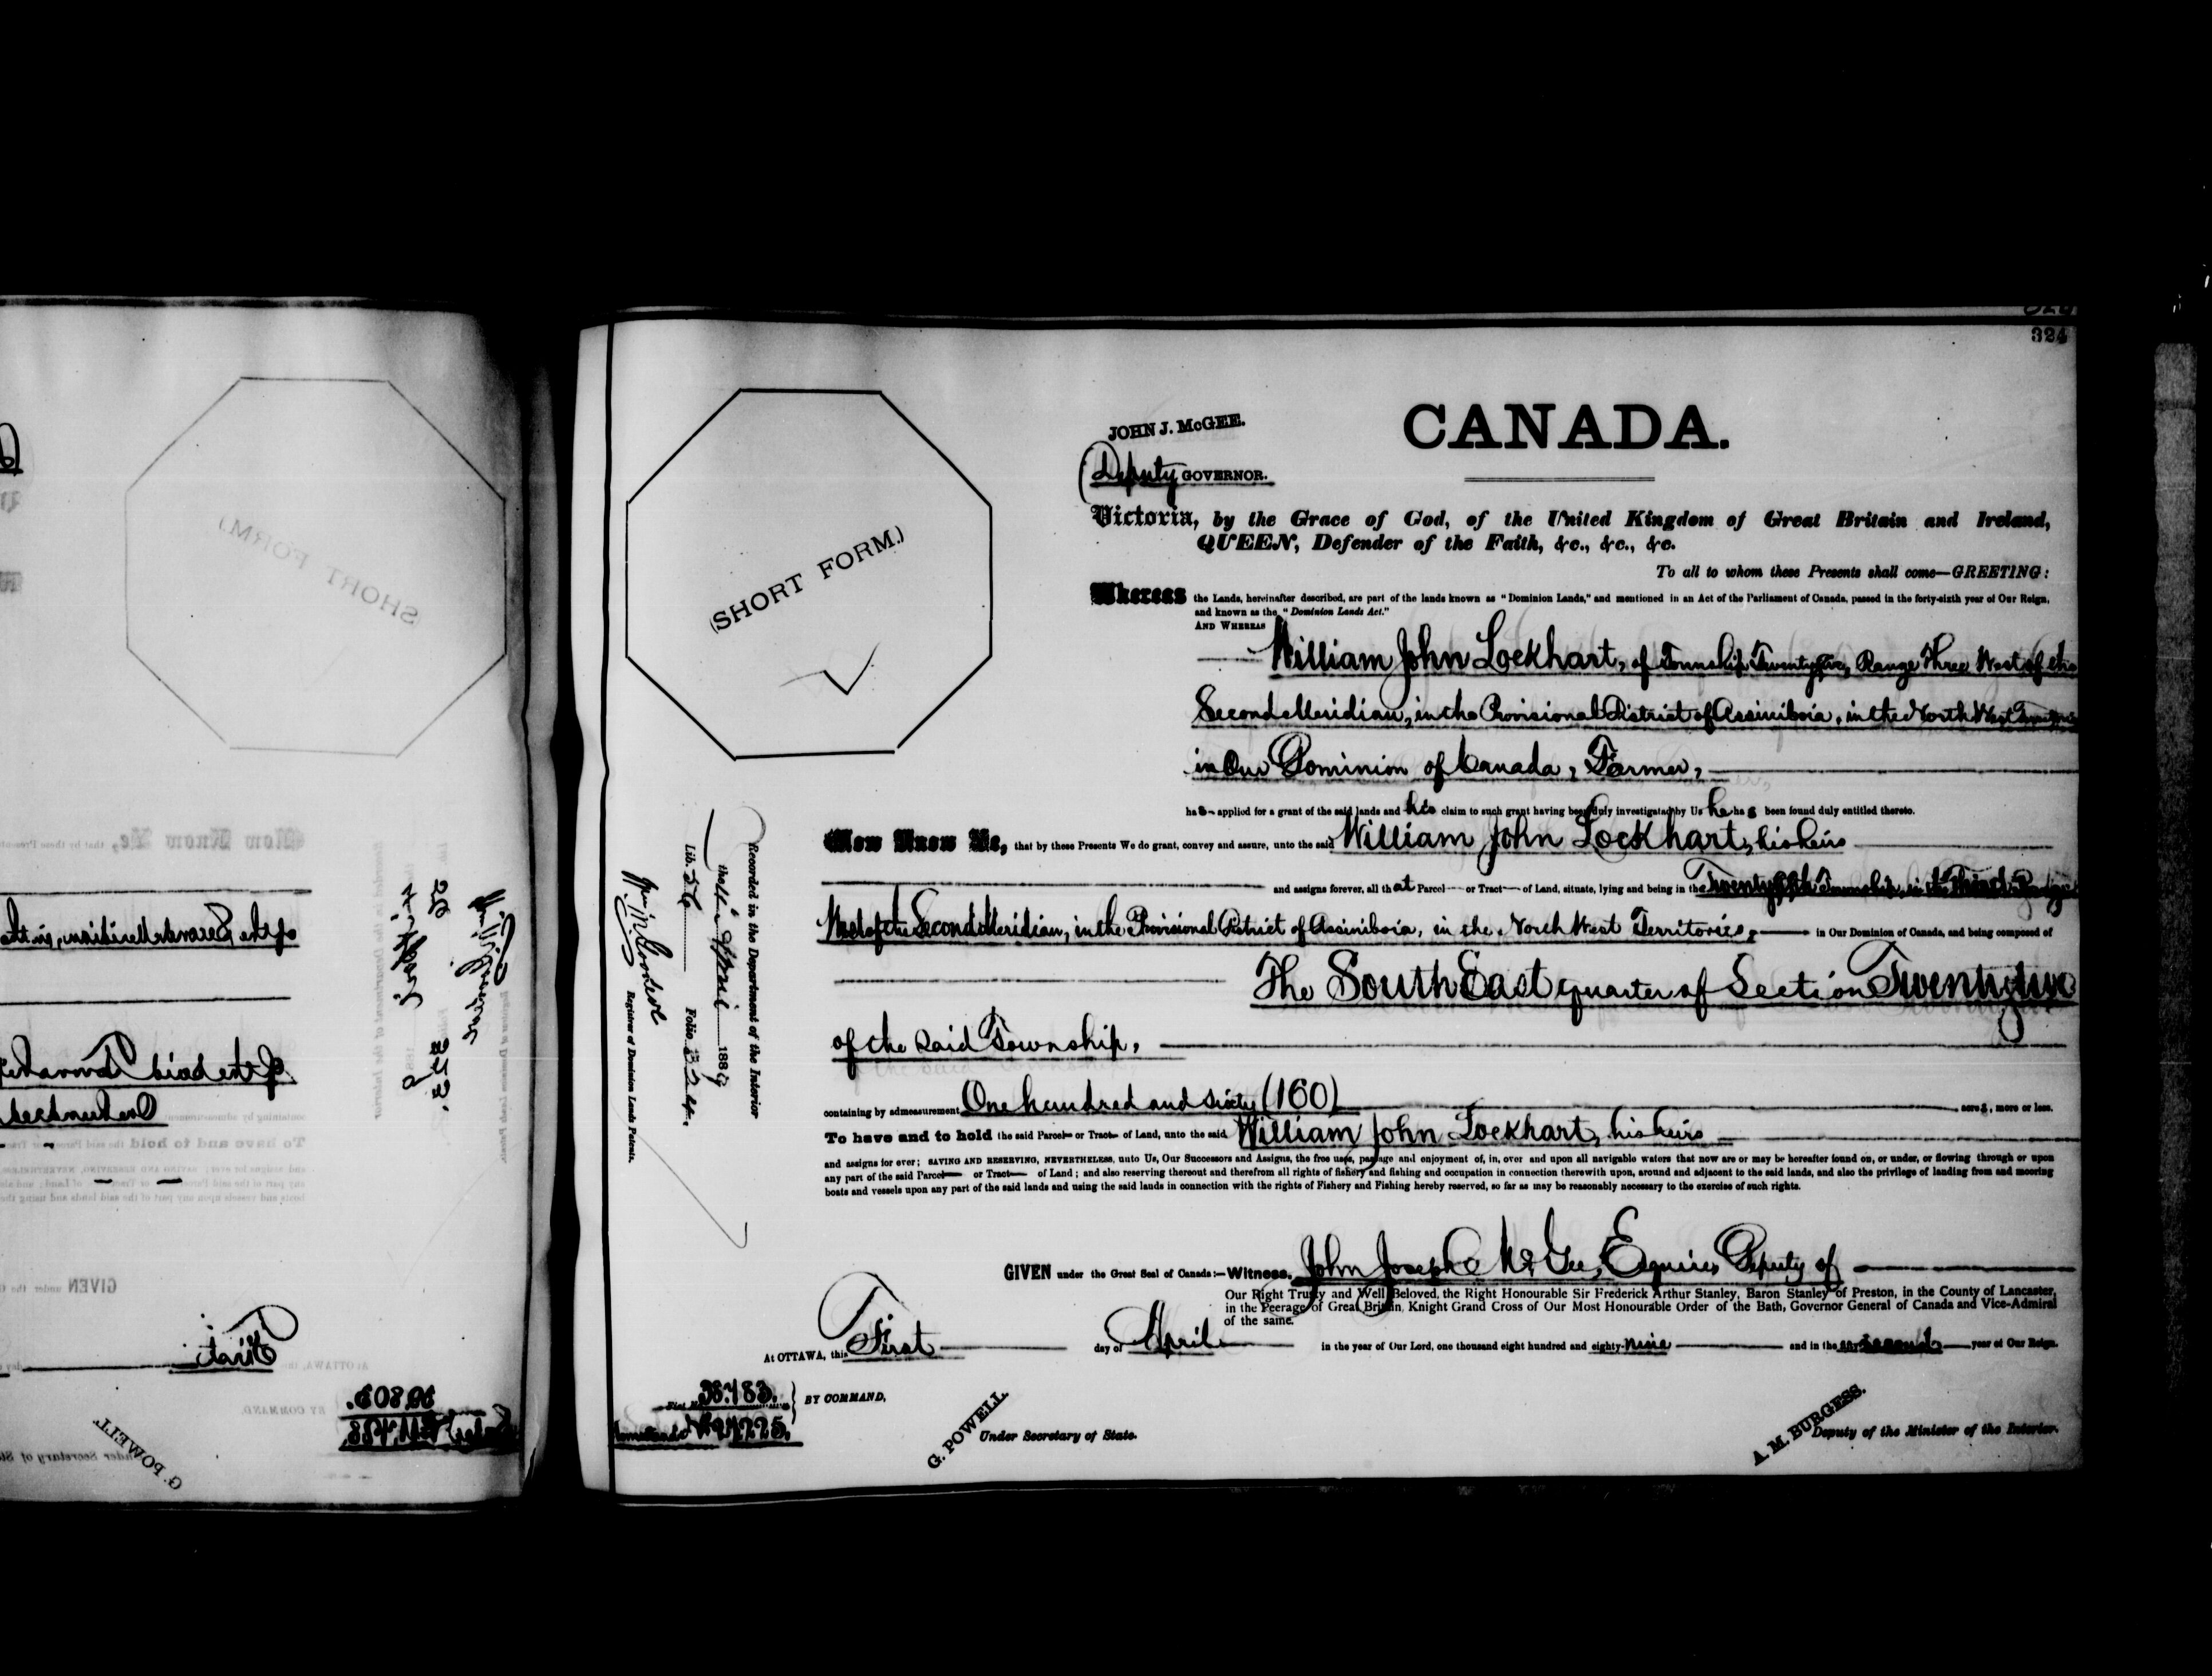 324
CANADA.
JOHN J. McGEE.
Deputy GOVERNOR.
Victoria, by the Grace of God, of the United Kingdom of Great Britain and Ireland,
QUEEN, Defender of the Faith, &c., &c., &c.
To all to whom these Presents shall come—GREETING:
Whereas the Lands, hereinafter described, are part of the lands known as "Dominion Lands," and mentioned in an Act of the Parliament of Canada, passed in the forty-sixth year of Our Reign,
and known as the "Dominion Lands Act."
AND WHEREAS
William John Lockhart, of Township Twenty five, Range Three West of the
Second Meridian, in the Provisional District of Assiniboia, in the North West Territories
in Our Dominion of Canada, Farmer,
has applied for a grant of the said lands and his claim to such grant having been duly investigated by Us he has been found duly entitled thereto.
Now Know Ye, that by these Presents We do grant, convey and assure, unto the said William John Lockhart, his heirs
and assigns forever, all that Parcel or Tract of Land, situate, lying and being in the Twenty fifth Township, in the Third Range
West of the Second Meridian, in the Provisional District of Assiniboia, in the North West Territories, in Our Dominion of Canada, and being composed of
The South East quarter of Section Twenty two
of the said Township,
containing by admeasurement One hundred and sixty (160) acres, more or less.
To have and to hold the said Parcel or Tract of Land, unto the said William John Lockhart, his heirs
and assigns for ever; SAVING AND RESERVING, NEVERTHELESS, unto Us, Our Successors and Assigns, the free uses, passage and enjoyment of, in, over and upon all navigable waters that now are or may be hereafter found on, or under, or flowing through or upon
any part of the said Parcel or Tract of Land; and also reserving thereout and therefrom all rights of fishery and fishing and occupation in connection therewith upon, around and adjacent to the said lands, and also the privilege of landing from and mooring
boats and vessels upon any part of the said lands and using the said lands in connection with the rights of Fishery and Fishing hereby reserved, so far as may be reasonably necessary to the exercise of such rights.
GIVEN under the Great Seal of Canada:—Witness, John Joseph McGee, Esquire, Deputy of
Our Right Trusty and Well Beloved, the Right Honourable Sir Frederick Arthur Stanley, Baron Stanley of Preston, in the County of Lancaster,
in the Peerage of Great Britain, Knight Grand Cross of Our Most Honourable Order of the Bath, Governor General of Canada and Vice-Admiral
of the same.
At OTTAWA, this First day of April in the year of Our Lord, one thousand eight hundred and eighty-nine and in the fifty second year of Our Reign.
BY COMMAND,
G. POWELL.
Under Secretary of State.
A. M. BURGESS.
Deputy of the Minister of the Interior.
(SHORT FORM.)
Recorded in the Department of the Interior
the April 1889
Lib. 56 Folio
Registrar of Dominion Lands Patents.
(SHORT FORM.)
Now Know Ye, that by these
of the Second Meridian, in the
of the said Township
One hundred
To have and to hold the said
GIVEN under the
First
At OTTAWA, this
BY COMMAND,
G. POWELL
Under Secretary of